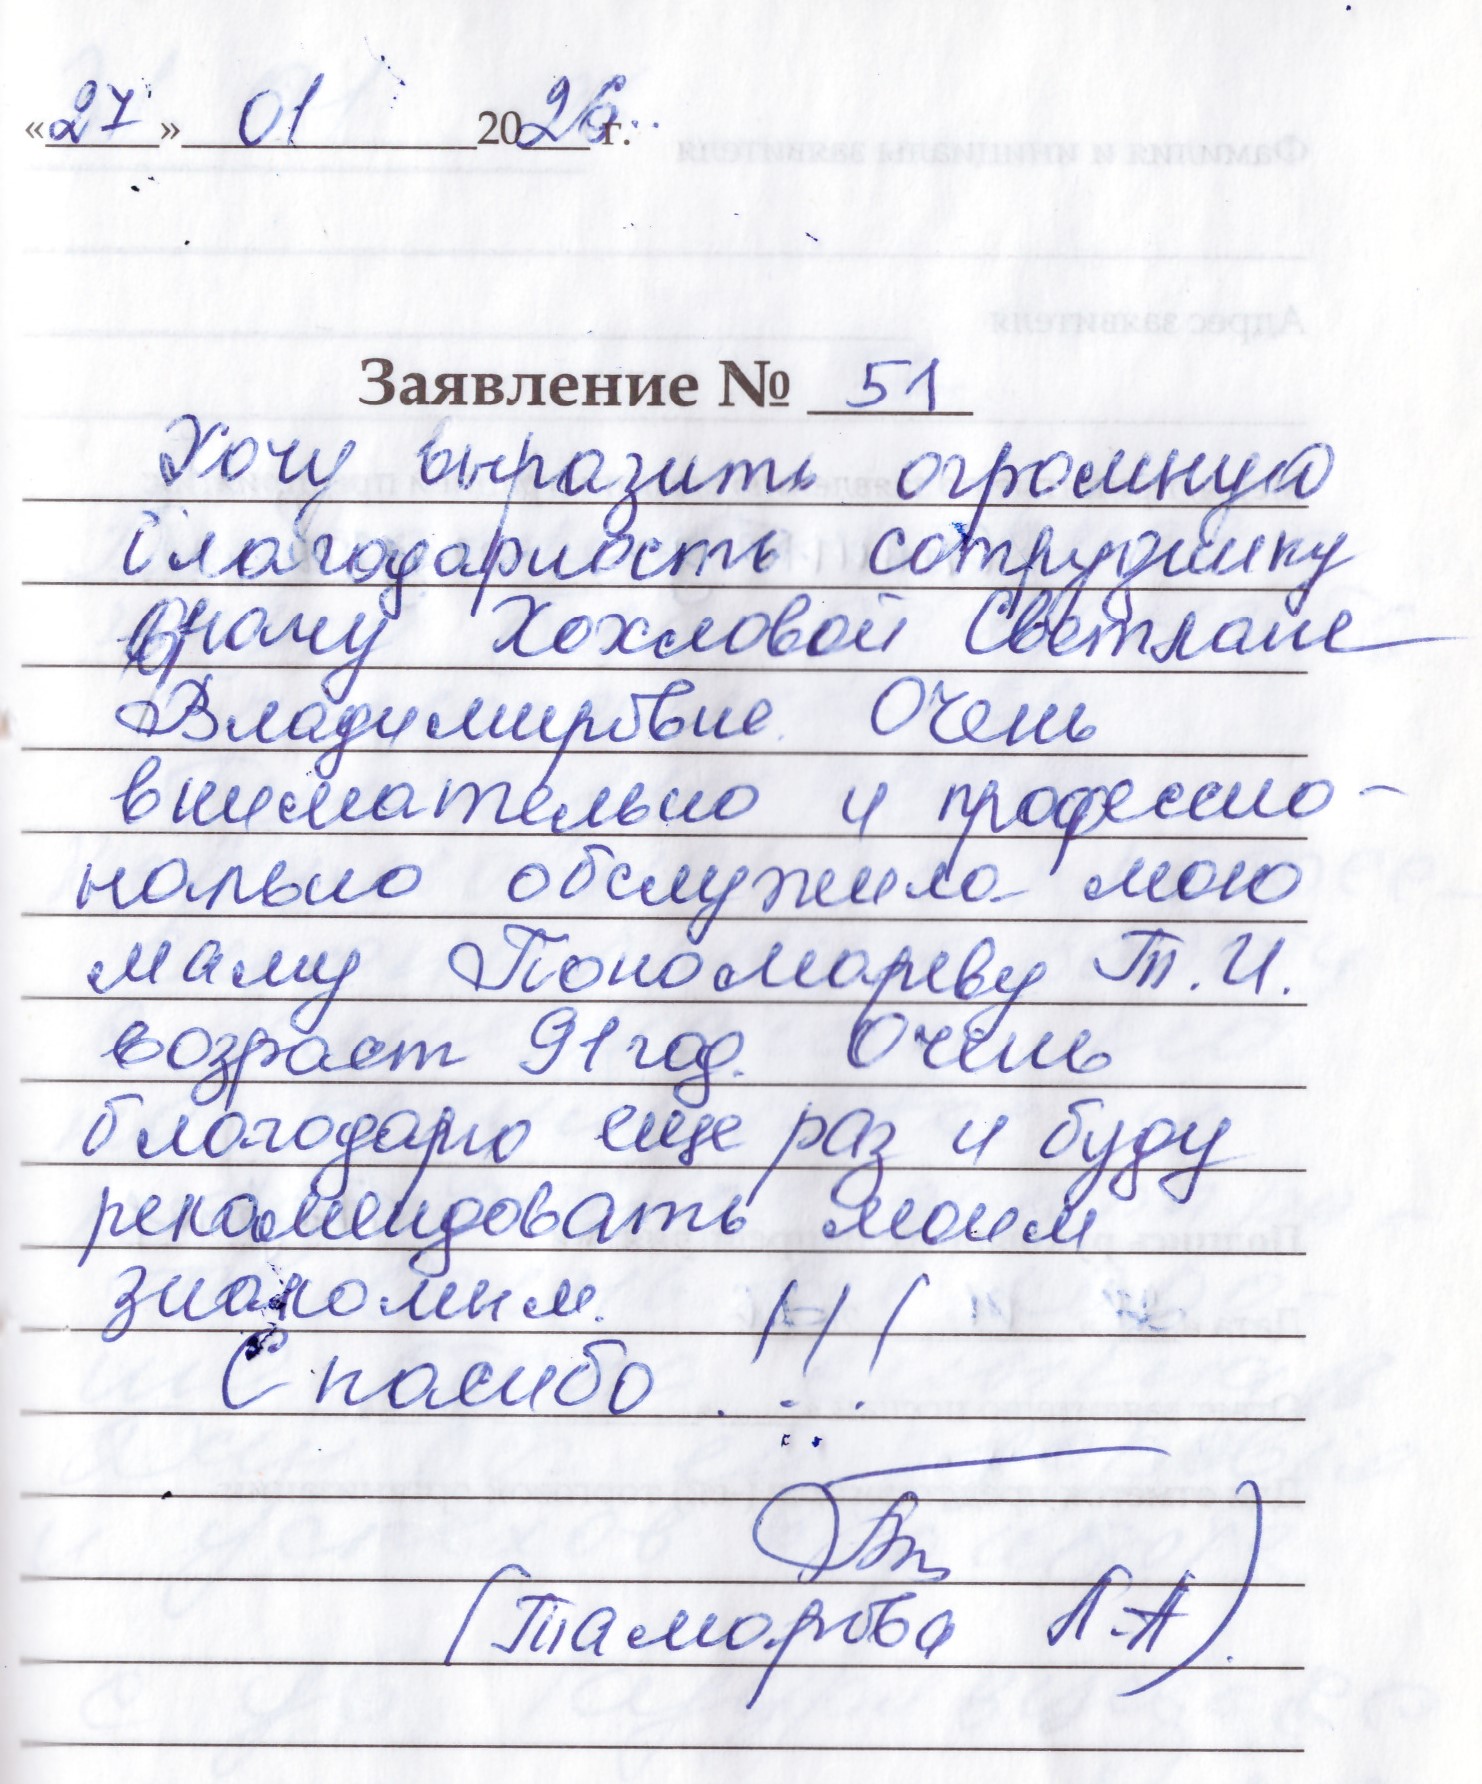 «27» 01 2026 г.
Заявление № 51
Хочу выразить огромную
благодарность сотруднику
врачу Хохловой Светлане
Владимировне. Очень
внимательно и професcио-
нально обслужила мою
маму Пономареву Т.И.
возраст 91 год. Очень
благодарю еще раз и буду
рекомендовать моим
знакомым.
Спасибо !!!
(Тамарова Л.А).